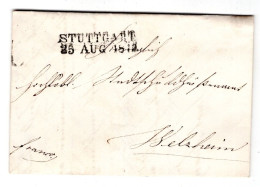 STUTTGART
25 AUG 1842
Hochlöbl. Stadtschuldheißenamt
Welzheim
franco